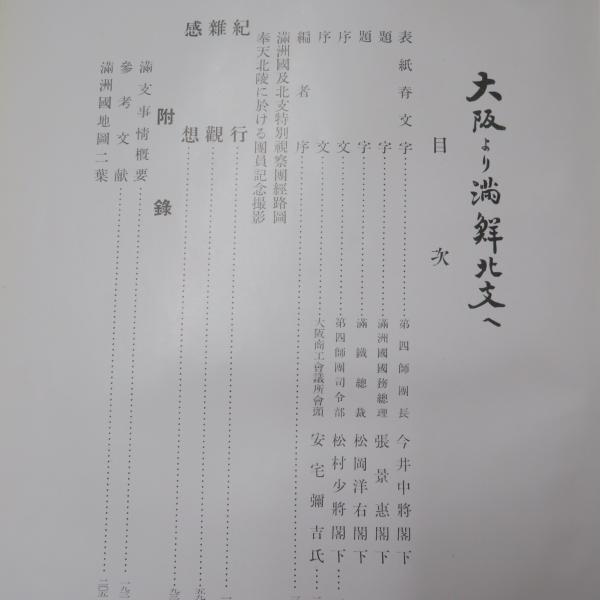 大阪より満鮮北支へ
目次
表紙脊文字……第四師團長 今井中將閣下
題字……滿洲國國務總理 張景惠閣下
題字……滿鐵總裁 松岡洋右閣下
序文……第四師團司令部 松村少將閣下
序文……大阪商工會議所會頭 安宅彌吉氏
編者序
滿洲國及北支特別視察團經路圖
奉天北陵に於ける團員記念撮影
紀行……一
雜觀……
感想……
附錄
滿支事情概要……
參考文献……
滿洲國地圖二葉……二〇五